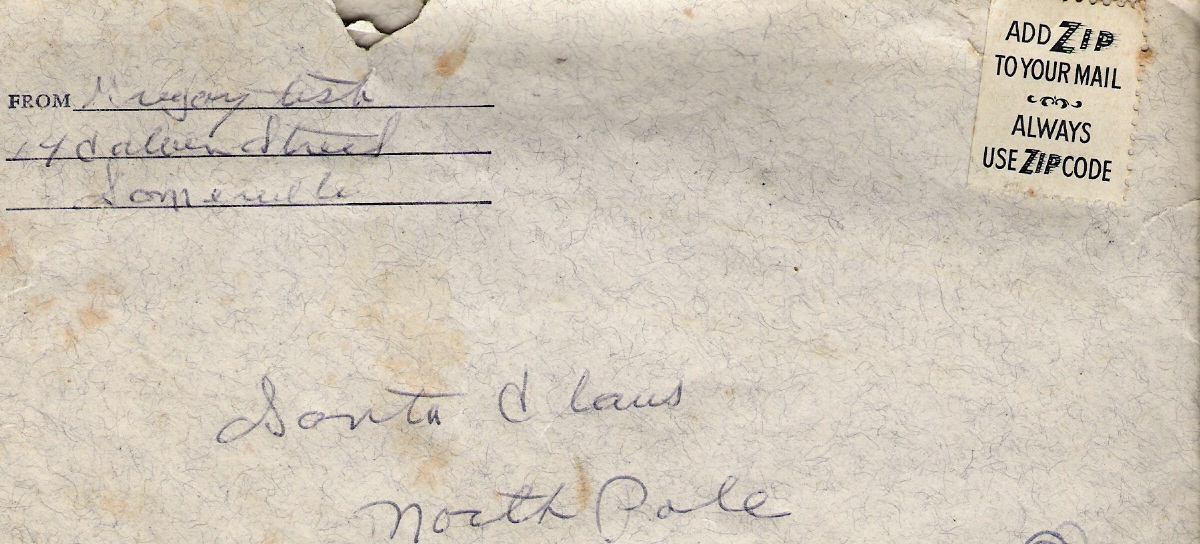 FROM Gregory
14 Street
Somerville
ADD ZIP
TO YOUR MAIL
ALWAYS
USE ZIP CODE
Santa Claus
North Pole